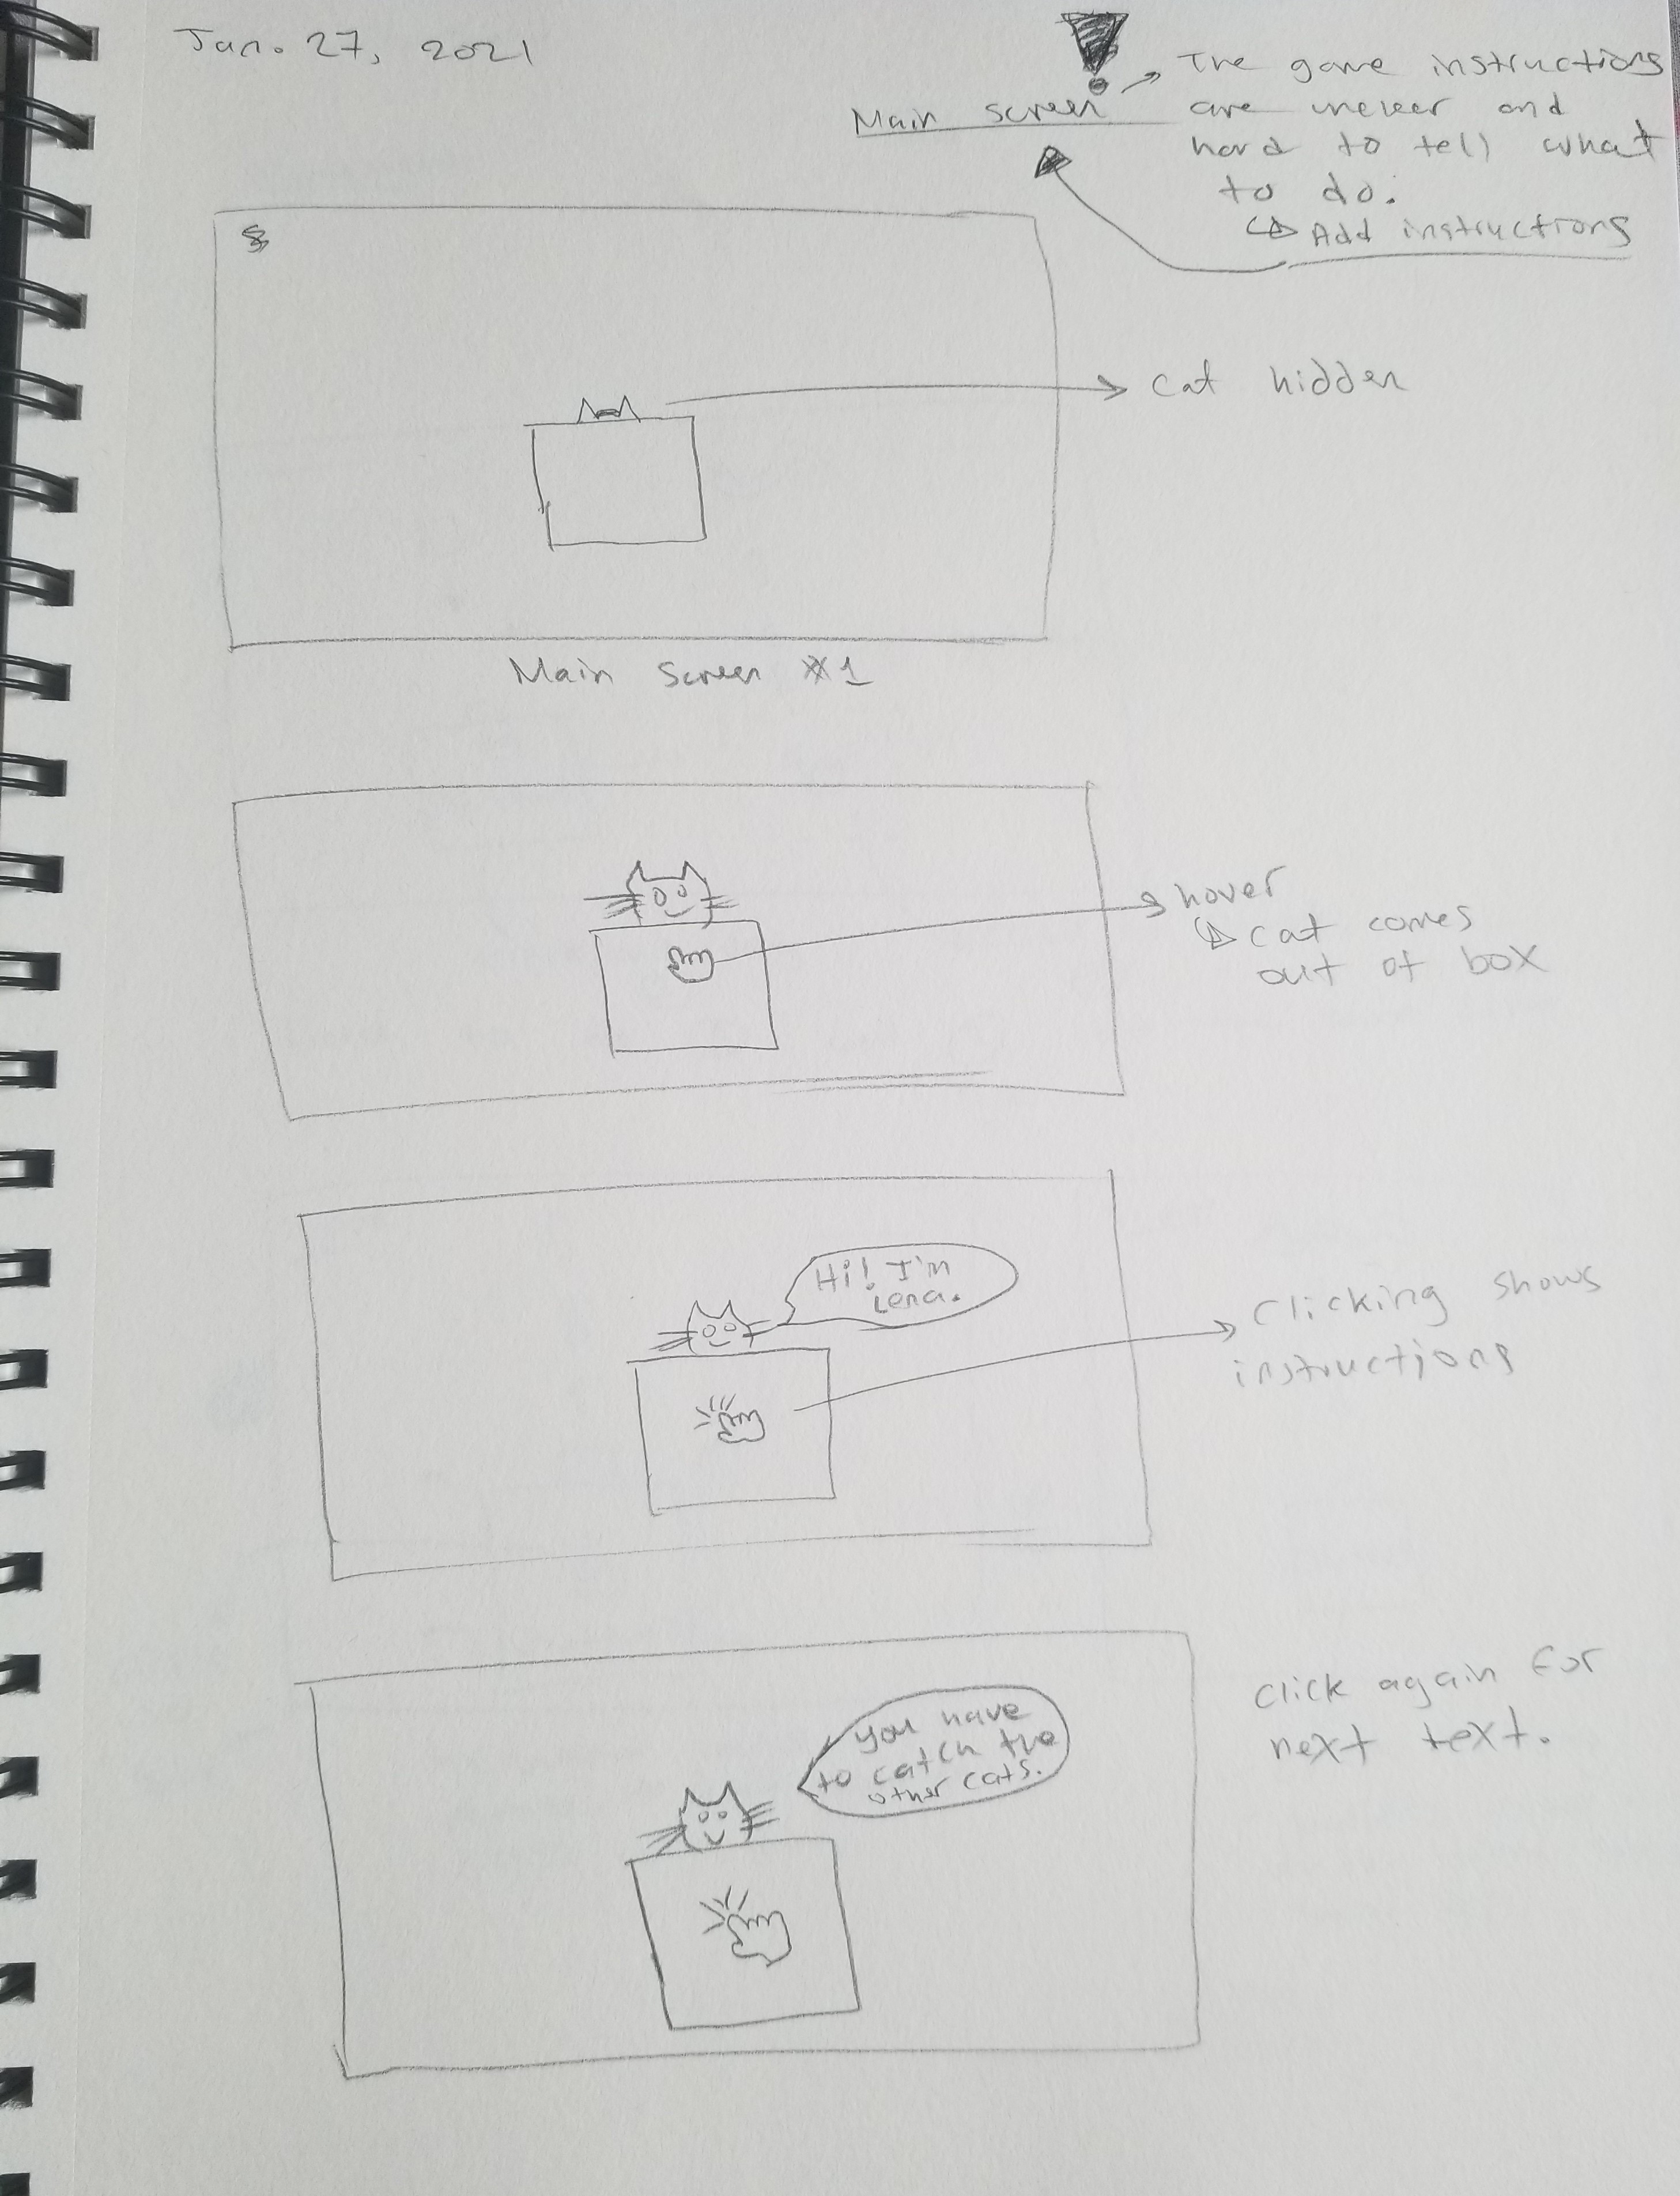 Jan. 27, 2021
Main screen
The game instructions
are uncleer and
hard to tell what
to do.
Add instructions
cat hidden
Main Screen #1
hover
cat comes
out of box
Hi! I'm
Lena.
Clicking shows
instructions
you have
to catch the
other cats.
click again for
next text.